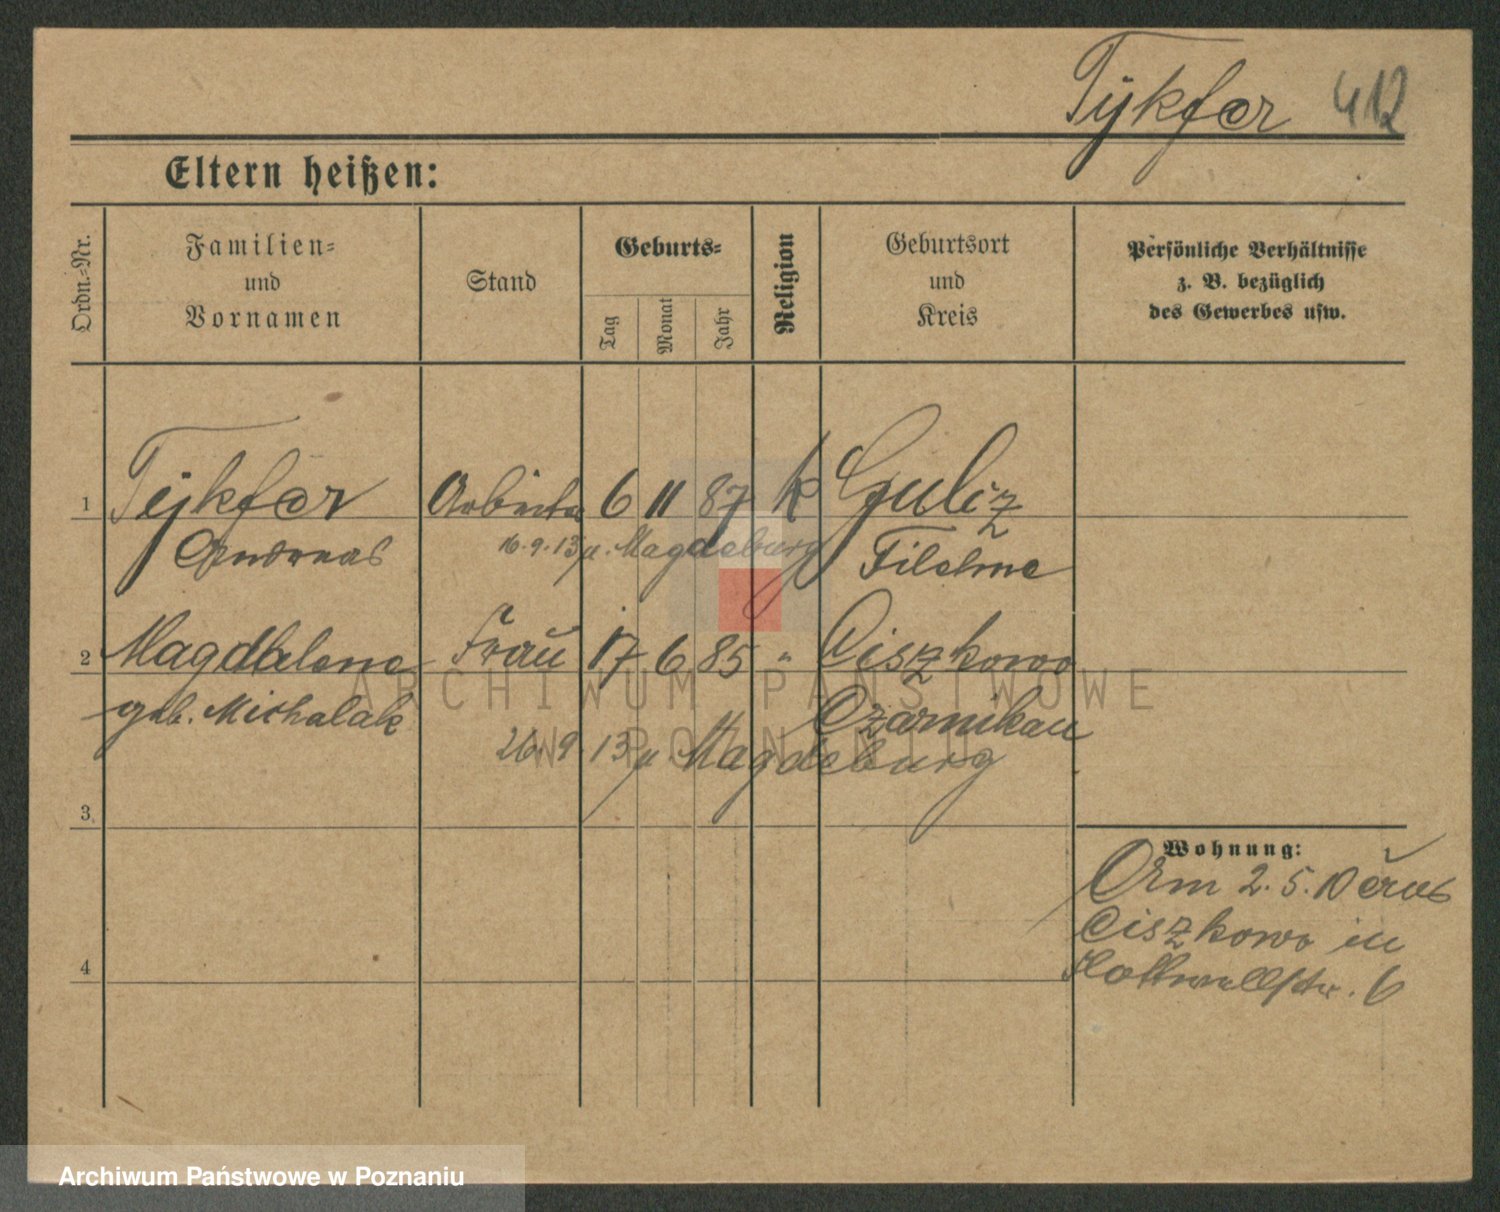 Tÿkfer 412
Eltern heißen:
Ordn.=Nr.
Familien=
und
Vornamen
Stand
Geburts=
Tag
Monat
Jahr
Religion
Geburtsort
und
Kreis
Persönliche Verhältnisse
z. B. bezüglich
des Gewerbes usw.
1 Tÿkfer Arbeiter 6 11 87 k Gulcz
Andreas 16.9.13 n. Magdeburg Filehne
2 Magdalene Frau 17 6 85 " Ciszkowo
geb. Michalak Czarnikau
26.9.13 n Magdeburg
3
Wohnung:
Am 2.5.10 aus
Ciszkowo in
4
6
ARCHIWUM PAŃSTWOWE
W POZNANIU
Archiwum Państwowe w Poznaniu